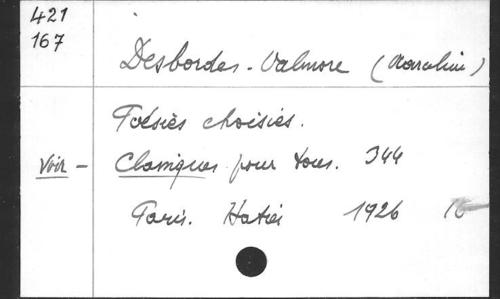 421
167
Desbordes-Valmore (Marceline)
Poésies choisies.
Voir - Classiques pour tous. 344
Paris. Hatier 1926 16